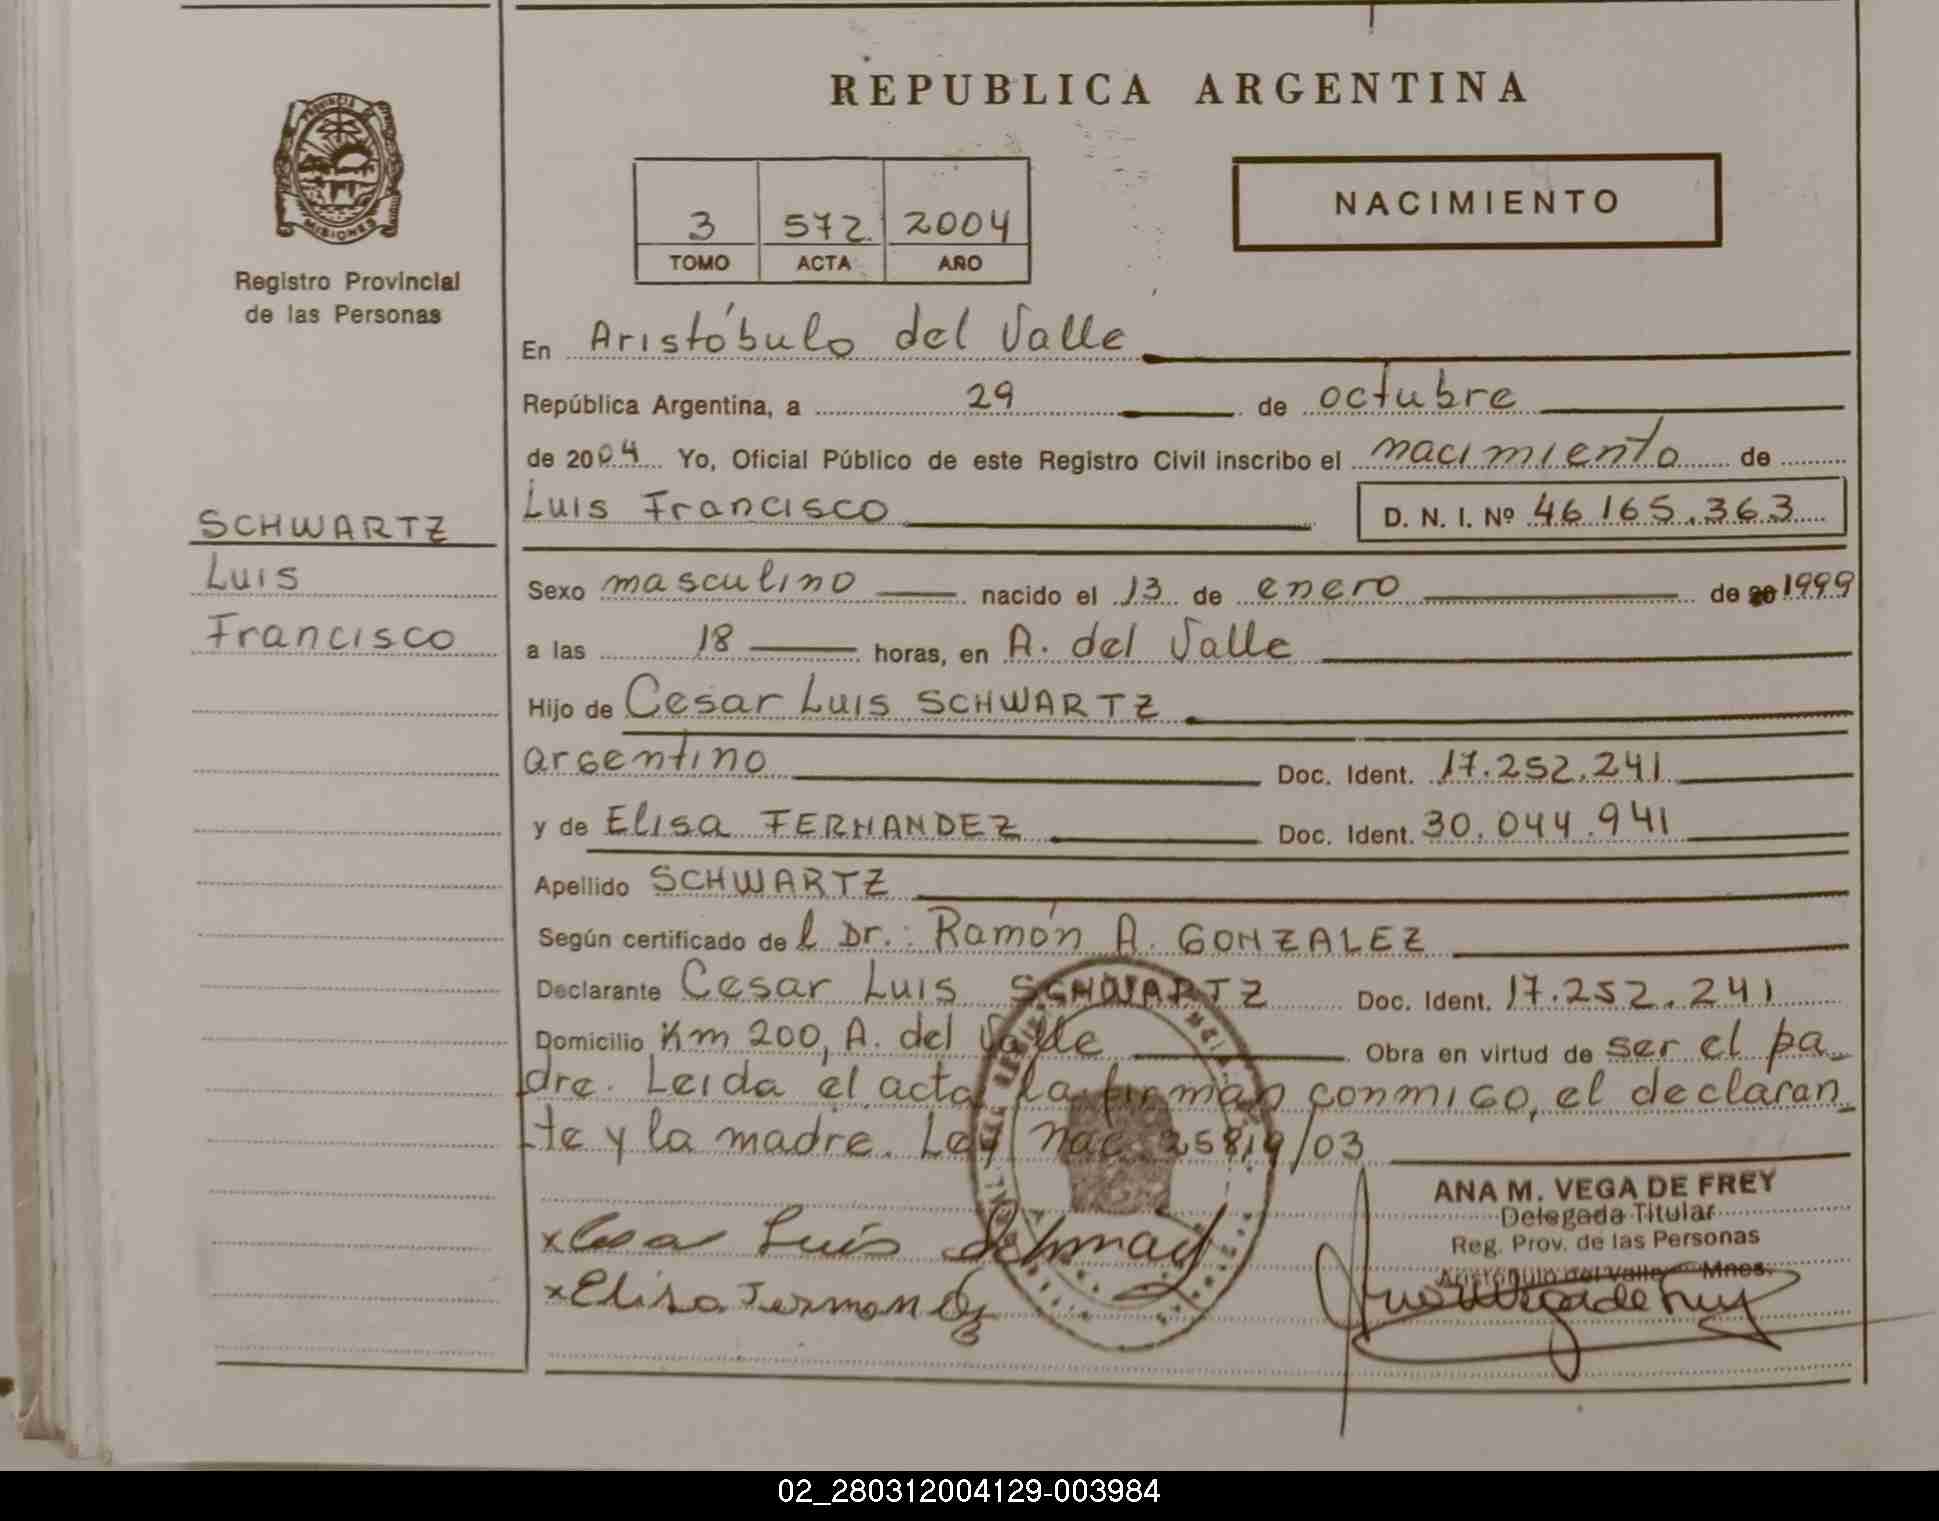 REPUBLICA ARGENTINA
PROVINCIA DE
MISIONES
Registro Provincial
de las Personas
3 572 2004
TOMO ACTA AÑO
NACIMIENTO
SCHWARTZ
Luis
Francisco
En Aristóbulo del Valle
República Argentina, a 29 de octubre
de 2004 Yo, Oficial Público de este Registro Civil inscribo el nacimiento de
Luis Francisco D. N. I. Nº 46.165.363
Sexo masculino nacido el 13 de enero de 20 1999
a las 18 horas, en A. del Valle
Hijo de Cesar Luis SCHWARTZ
argentino Doc. Ident. 17.252.241
y de Elisa FERNANDEZ Doc. Ident. 30.044.941
Apellido SCHWARTZ
Según certificado de l Dr.: Ramón A. GONZALEZ
Declarante Cesar Luis SCHWARTZ Doc. Ident. 17.252.241
Domicilio Km 200, A. del Valle Obra en virtud de ser el pa_
dre. Leida el acta la firman conmigo, el declaran_
_te y la madre. Ley nac 25819/03
ANA M. VEGA DE FREY
Delegada Titular
Reg. Prov. de las Personas
Aristóbulo del Valle - Mnes.
x Luis
x Elisa Fernandez
02_280312004129-003984